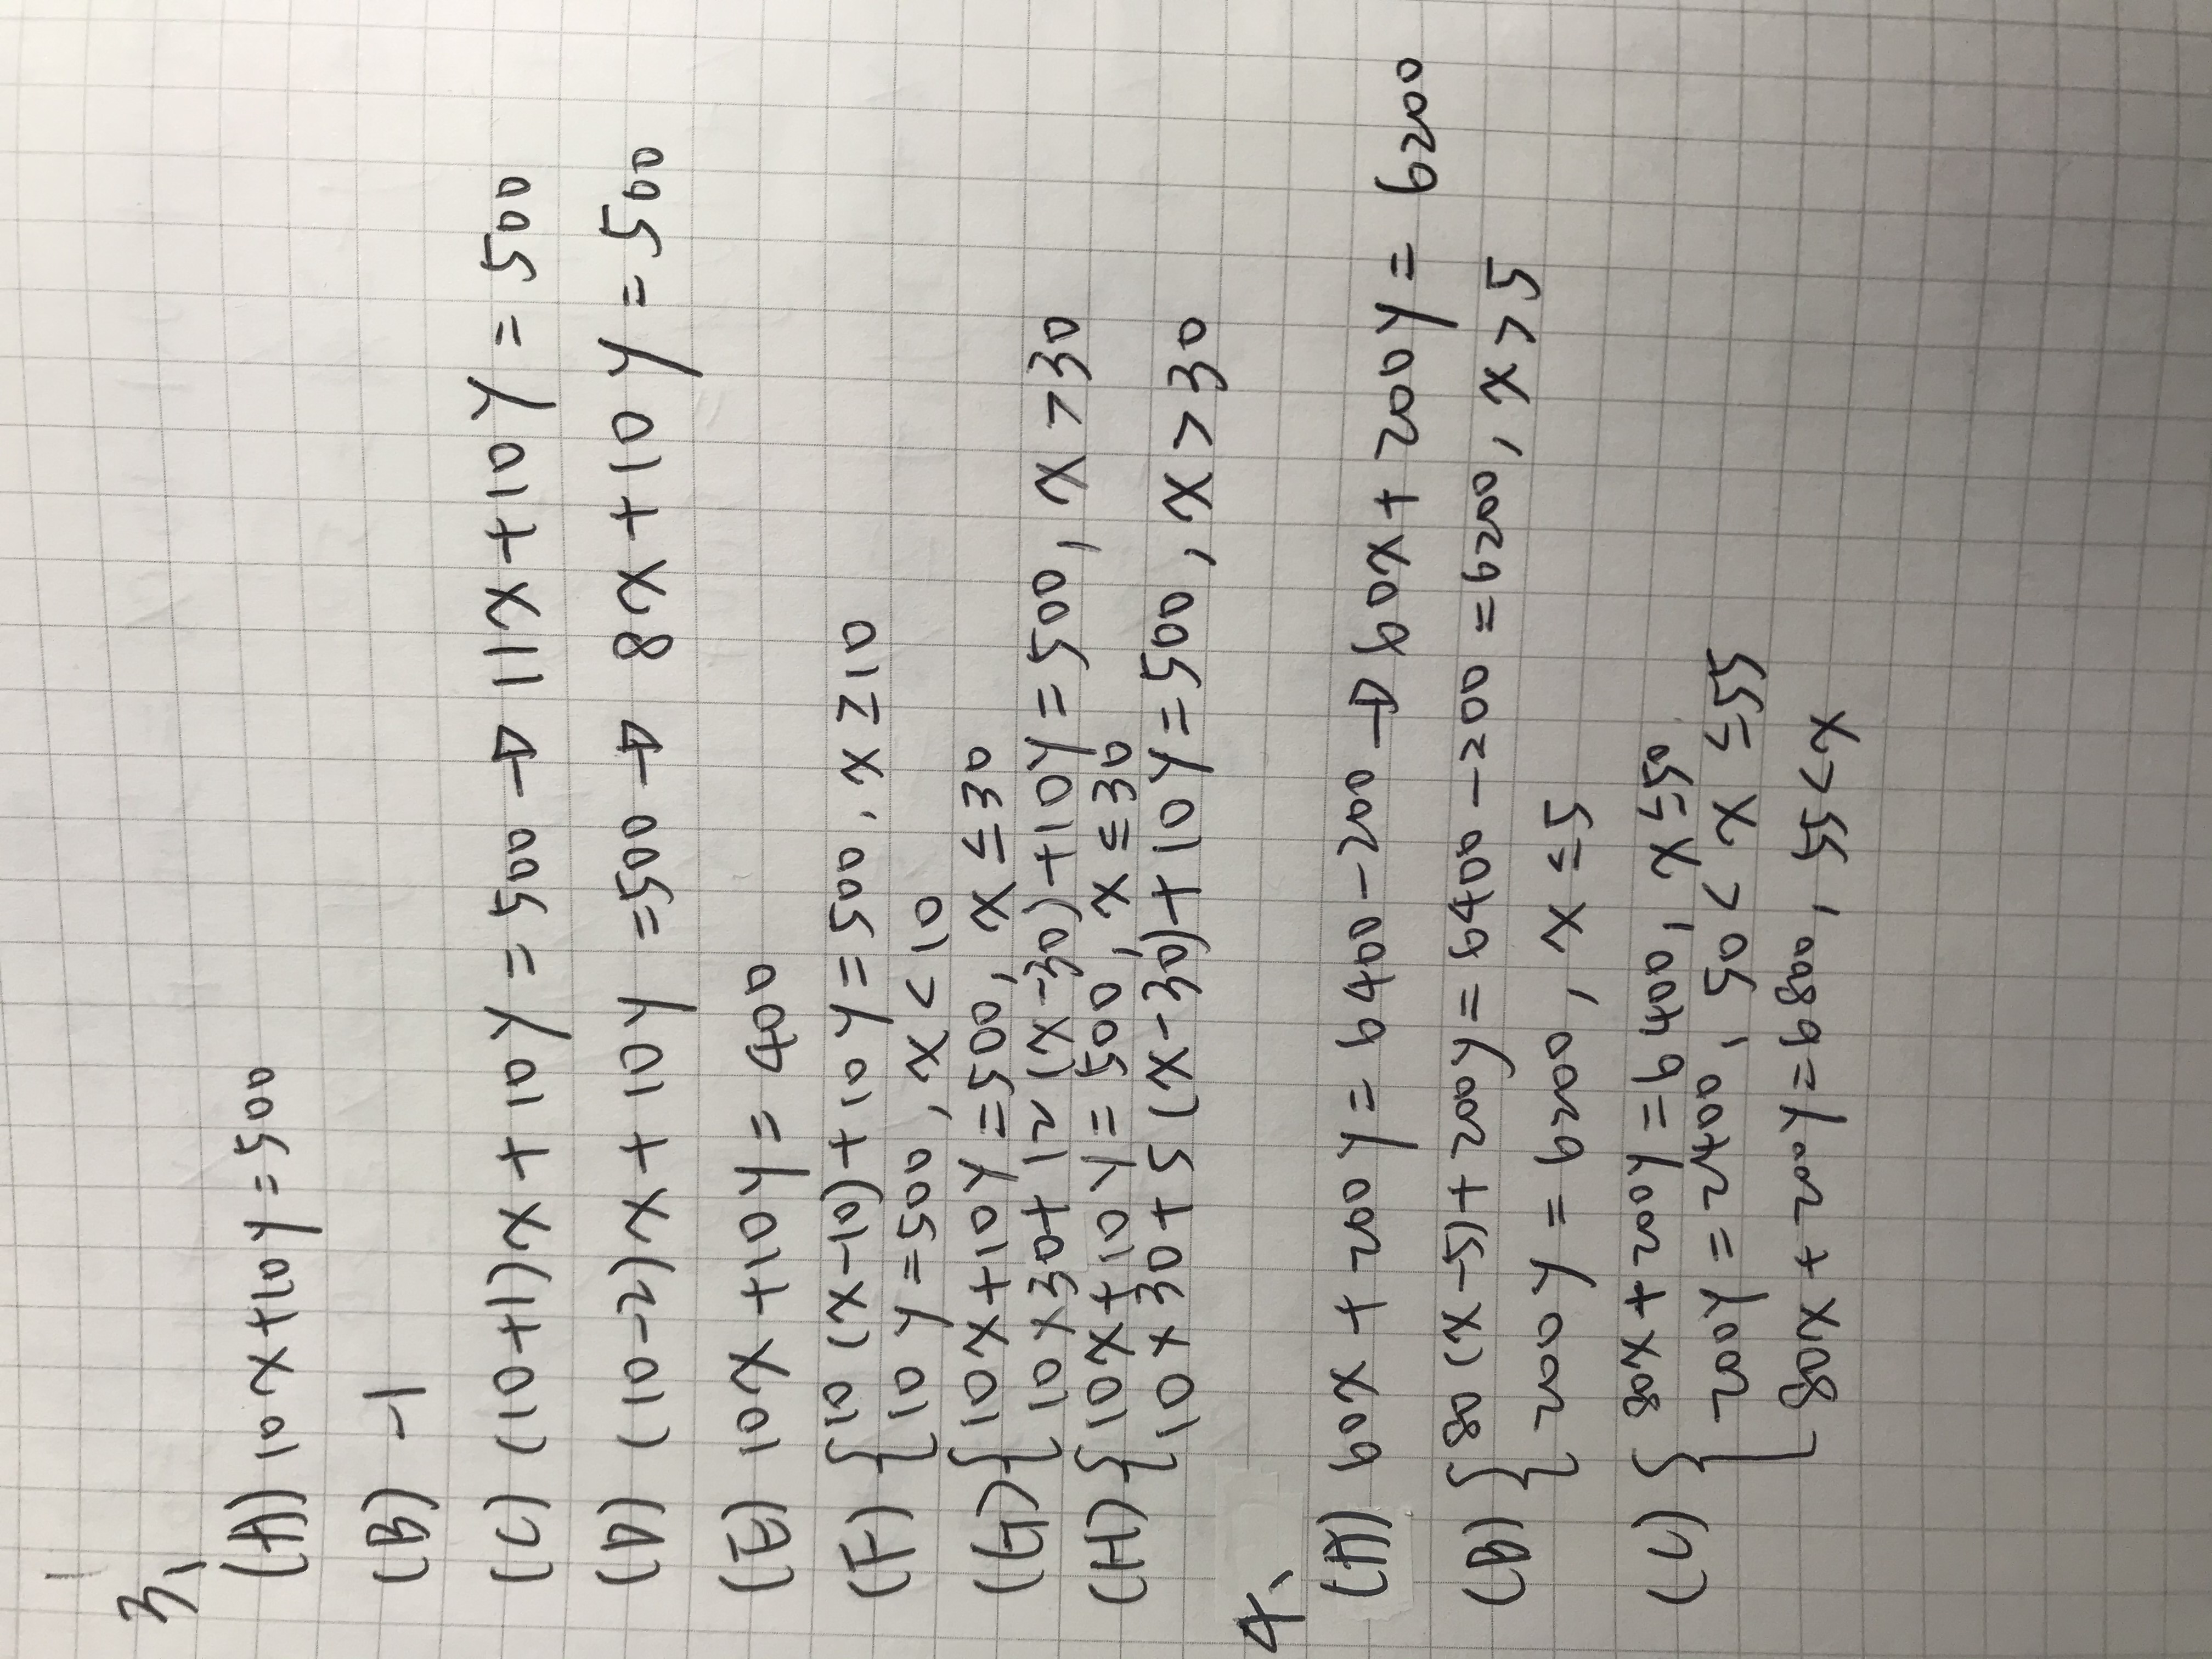 3、
(A) 10x+10y=500
(B) -1
(C) (10+1)x+10y=500→11x+10y=500
(D) (10-2)x+10y=500→8x+10y=500
(E) 10x+10y=400
(F) {10(x-10)+10y=500, x≥10
10y=500, x<10
(G) {10x+10y=500, x≤30
10×30+12(x-30)+10y=500, x>30
(H) {10x+10y=500, x≤30
10×30+5(x-30)+10y=500, x>30
4、
(A) 60x+200y=6400-200→60x+200y=6200
(B) {80(x-5)+200y=6400-200=6200, x>5
200y=6200, x≤5
(C) {80x+200y=6400, x≤50
200y=2400, 50<x≤55
80x+200y=6800, 55<x